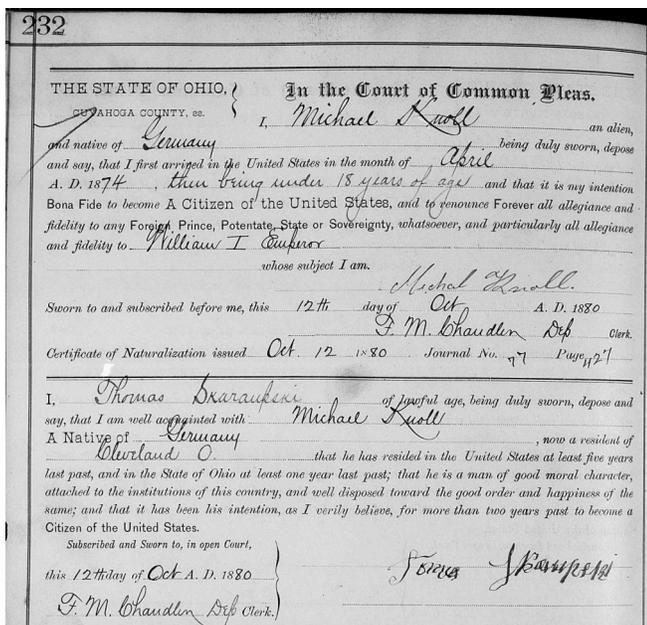 232
THE STATE OF OHIO, In the Court of Common Pleas.
CUYAHOGA COUNTY, ss. I, Michael Knoll an alien,
and native of Germany being duly sworn, depose
and say, that I first arrived in the United States in the month of April
A. D. 1874, then being under 18 years of age and that it is my intention
Bona Fide to become A Citizen of the United States, and to renounce Forever all allegiance and
fidelity to any Foreign Prince, Potentate, State or Sovereignty, whatsoever, and particularly all allegiance
and fidelity to William I Emperor
whose subject I am.
Michal Knoll.
Sworn to and subscribed before me, this 12th day of Oct A. D. 1880
F. M. Chandler Dep Clerk.
Certificate of Naturalization issued Oct. 12 1880 Journal No. 77 Page 427
I, Thomas Skaraupski of lawful age, being duly sworn, depose and
say, that I am well acquainted with Michael Knoll
A Native of Germany, now a resident of
Cleveland O. that he has resided in the United States at least five years
last past, and in the State of Ohio at least one year last past; that he is a man of good moral character,
attached to the institutions of this country, and well disposed toward the good order and happiness of the
same; and that it has been his intention, as I verily believe, for more than two years past to become a
Citizen of the United States.
Subscribed and Sworn to, in open Court,
this 12th day of Oct A. D. 1880
F. M. Chandler Dep Clerk.